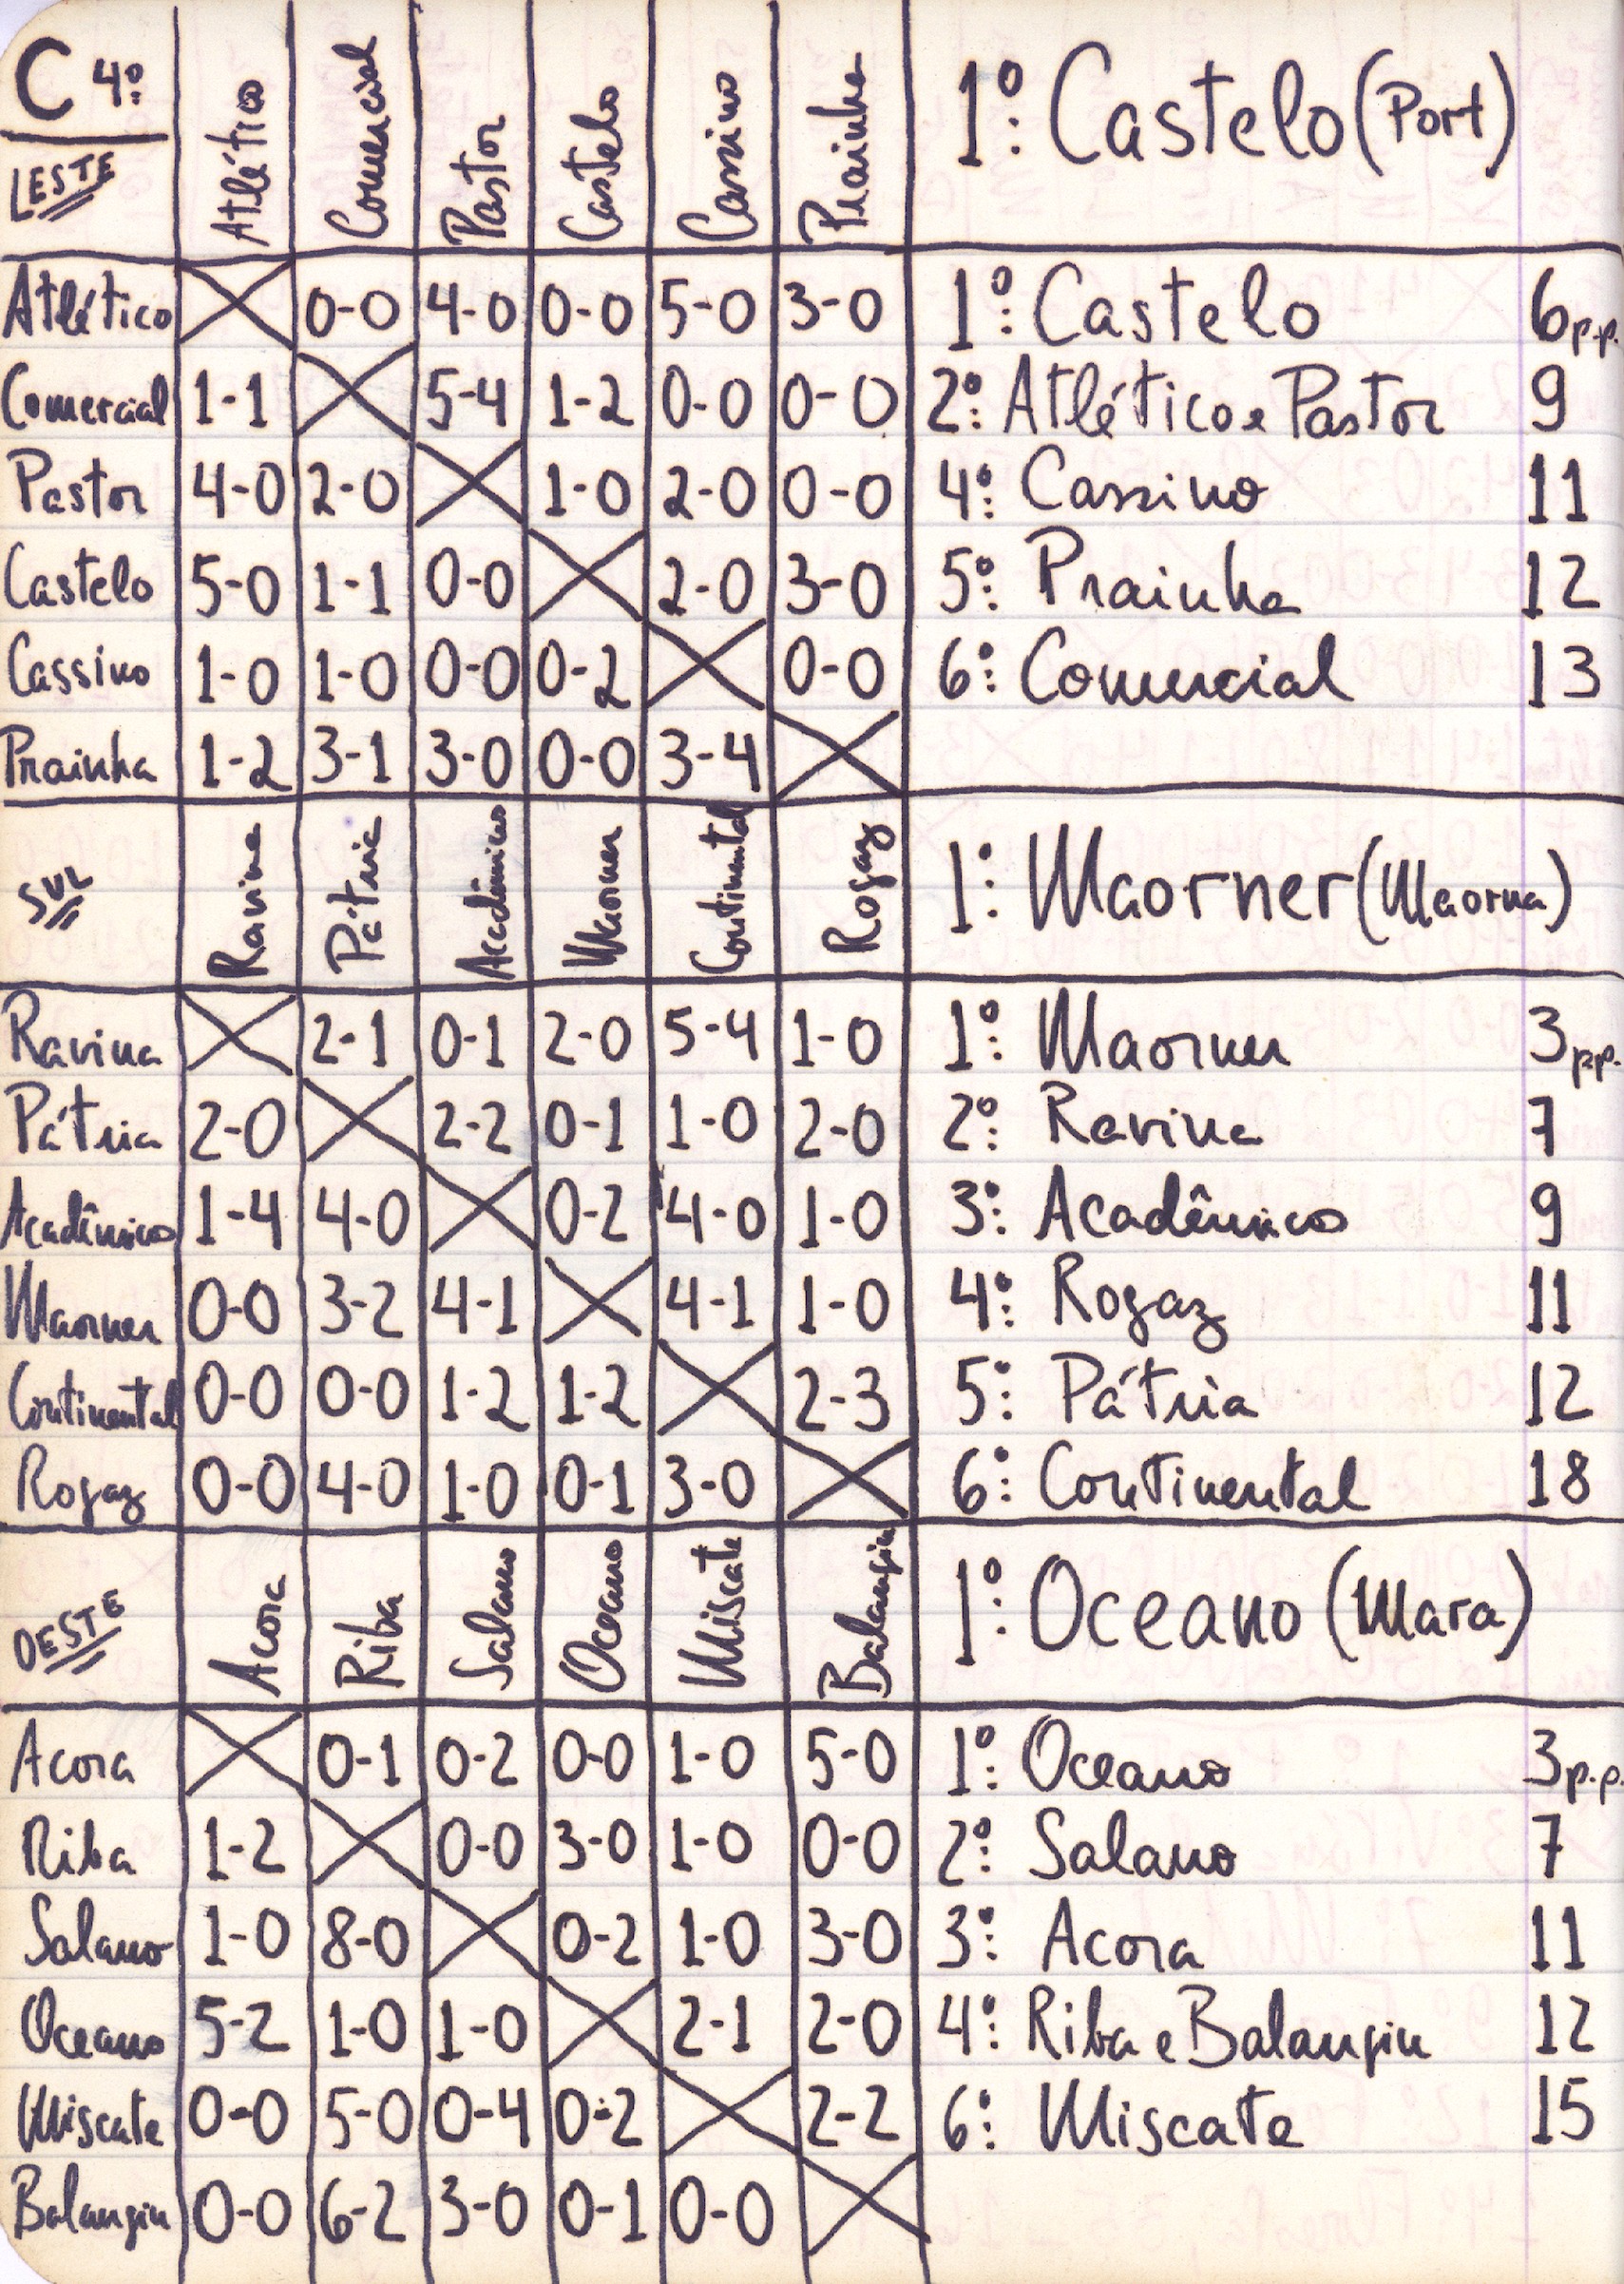 C 4º
LESTE Atlético Comercial Pastor Castelo Cassino Prainha 1º: Castelo (Port)
Atlético 0-0 4-0 0-0 5-0 3-0 1º: Castelo 6 p.p.
Comercial 1-1 5-4 1-2 0-0 0-0 2º: Atlético e Pastor 9
Pastor 4-0 2-0 1-0 2-0 0-0 4º: Cassino 11
Castelo 5-0 1-1 0-0 2-0 3-0 5º: Prainha 12
Cassino 1-0 1-0 0-0 0-2 0-0 6º: Comercial 13
Prainha 1-2 3-1 3-0 0-0 3-4
SUL Ravina Pátria Acadêmicos Maorner Continental Rogaz 1º: Maorner (Maorna)
Ravina 2-1 0-1 2-0 5-4 1-0 1º: Maorner 3 p.p.
Pátria 2-0 2-2 0-1 1-0 2-0 2º: Ravina 7
Acadêmicos 1-4 4-0 0-2 4-0 1-0 3º: Acadêmicos 9
Maorner 0-0 3-2 4-1 4-1 1-0 4º: Rogaz 11
Continental 0-0 0-0 1-2 1-2 2-3 5º: Pátria 12
Rogaz 0-0 4-0 1-0 0-1 3-0 6º: Continental 18
OESTE Acora Riba Salano Oceano Miscate Balangin 1º: Oceano (Mara)
Acora 0-1 0-2 0-0 1-0 5-0 1º: Oceano 3 p.p.
Riba 1-2 0-0 3-0 1-0 0-0 2º: Salano 7
Salano 1-0 8-0 0-2 1-0 3-0 3º: Acora 11
Oceano 5-2 1-0 1-0 2-1 2-0 4º: Riba e Balangin 12
Miscate 0-0 5-0 0-4 0-2 2-2 6º: Miscate 15
Balangin 0-0 6-2 3-0 0-1 0-0